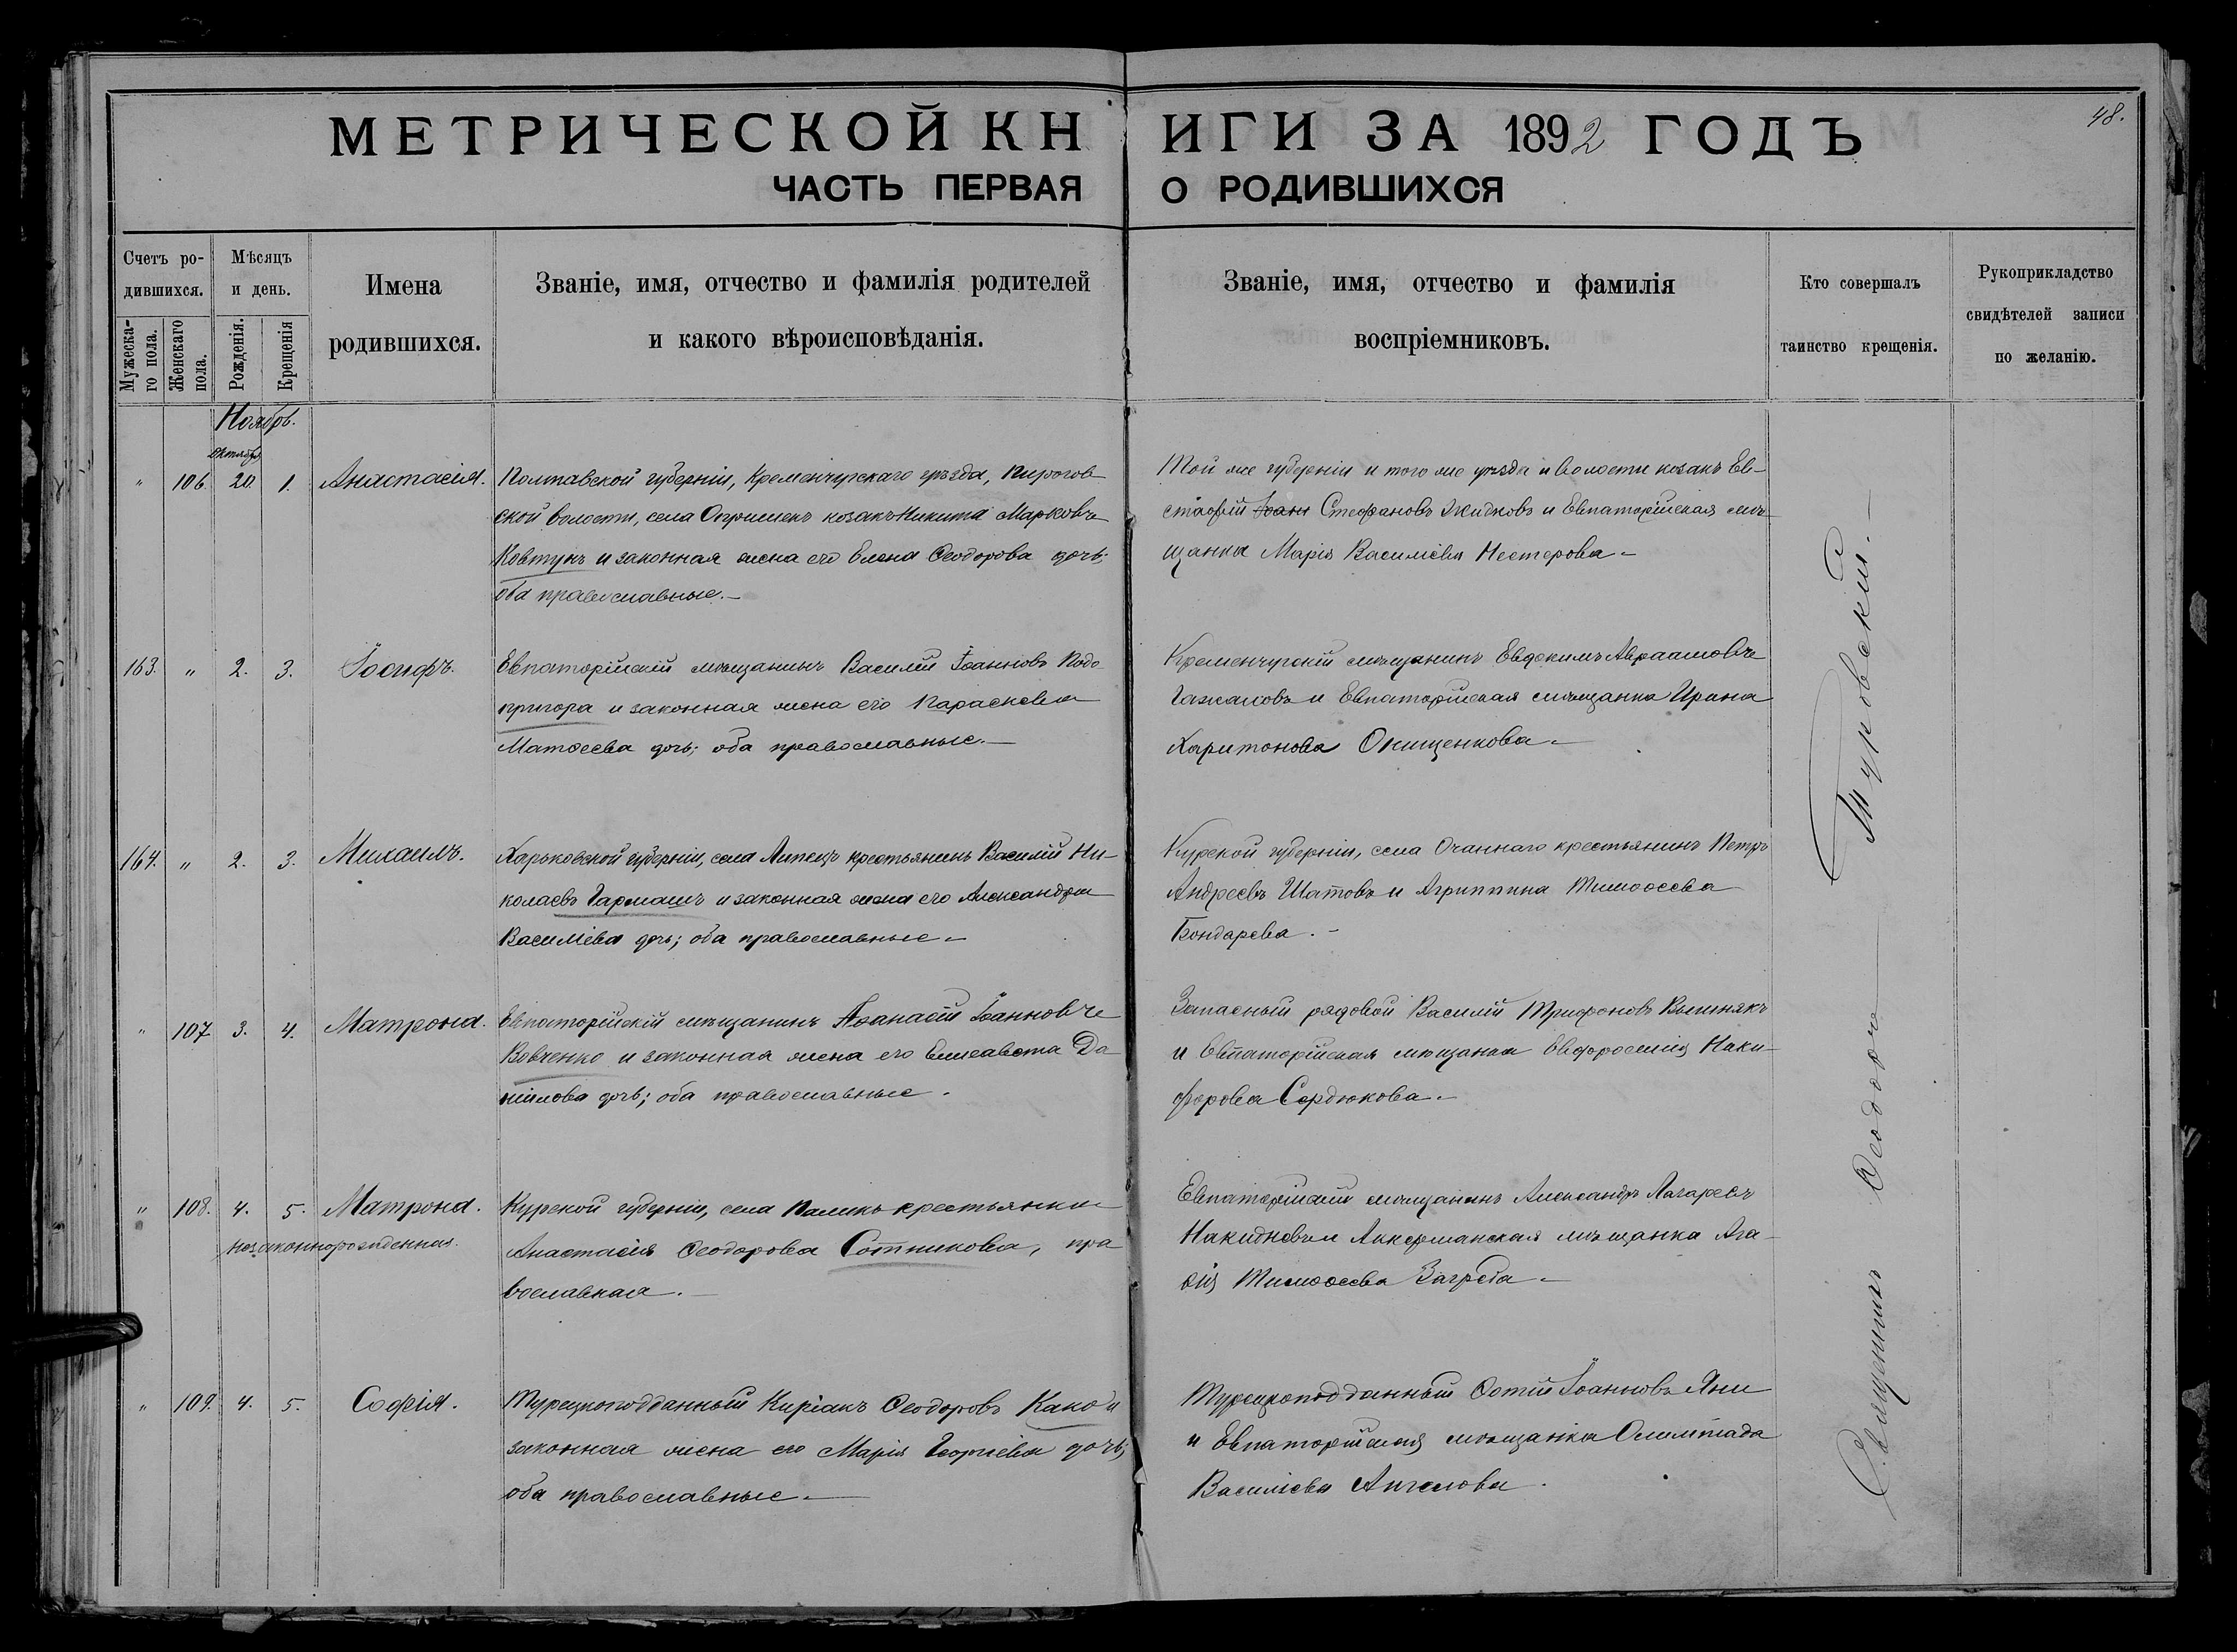 48.
МЕТРИЧЕСКОЙ КНИГИ ЗА 1892 ГОДЪ
ЧАСТЬ ПЕРВАЯ О РОДИВШИХСЯ
Счетъ родившихся.
Мужескаго пола.
Женскаго пола.
Мѣсяцъ и день.
Рожденія.
Крещенія
Имена родившихся.
Званіе, имя, отчество и фамилія родителей
и какого вѣроисповѣданія.
Званіе, имя, отчество и фамилія
воспріемниковъ.
Кто совершалъ
таинство крещенія.
Рукоприкладство
свидѣтелей записи
по желанію.
Ноябрь.
Октября
" 106. 20. 1. Анастасія.
Полтавской губерніи, Кременчугскаго уѣзда, Пирогов-
ской волости, села козакъ Никита Марковъ
Ковтунъ и законная жена его Елена Ѳеодорова дочь;
оба православные.—
Той же губерніи и того же уѣзда и волости козакъ Ев-
стафій Стефановъ Жидковъ и Евпаторійская мѣ-
щанка Марія Василіева Нестерова.—
163. " 2. 3. Іосифъ.
Евпаторійскій мѣщанинъ Василій Іоанновъ Подо-
пригора и законная жена его Параскева
Матѳеева дочь; оба православные.—
Кременчугскій мѣщанинъ Евдокимъ Авраамовъ
и Евпаторійская мѣщанка Ирина
Харитонова Онищенкова.—
164. " 2. 3. Михаилъ.
Харьковской губерніи, села Липецъ крестьянинъ Василій Ни-
колаевъ Гармашъ и законная жена его Александра
Василіева дочь; оба православные.—
Курской губерніи, села крестьянинъ Петръ
Андреевъ Шатовъ и Агриппина Тимоѳеева
Бондарева.—
" 107 3. 4. Матрона.
Евпаторійскій мѣщанинъ Аѳанасій Іоанновъ
Вовченко и законная жена его Елисавета Да-
ніилова дочь; оба православные.
Запасный рядовой Василій Трифоновъ Вишнякъ
и Евпаторійская мѣщанка Евфросинія Ники-
форова Сердюкова.—
" 108. 4. 5. Матрона.
незаконнорожденная.
Курской губерніи, села крестьянка
Анастасія Ѳеодорова Сотникова, пра-
вославная.—
Евпаторійскій мѣщанинъ Александръ Лазаревъ
и Аккерманская мѣщанка Ага-
ѳія Тимоѳеева Загреба.—
" 109. 4. 5. Софія.
Турецкоподданный Киріакъ Ѳеодоровъ Како и
законная жена его Марія Георгіева дочь;
оба православные.—
Турецкоподданный Фотій Іоанновъ Яни
и Евпаторійская мѣщанка Олимпіада
Василіева Ангелова.
Священникъ Ѳеодоръ Туровскій.—